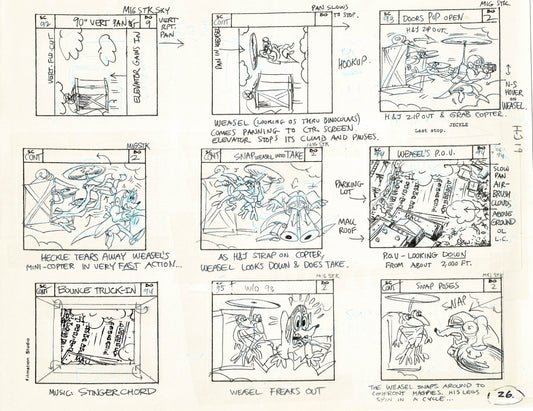 MIG STK.SKY
SC
92
90° VERT PAN
BG
9
VERT
RPT.
PAN
VERT. FLD CUT
ELEVATOR GOING IN
SC
CONT
PAN SLOWS
TO STOP.
PAN IN WEASEL
HOOKUP.
WEASEL (LOOKING OS THRU BINOCULARS)
COMES PANNING TO CTR. SCREEN
ELEVATOR STOPS ITS CLIMB AND PAUSES.
MIG STK.
SC
93
DOORS POP OPEN
BG
2
H&J ZIP OUT
N-S
HOVER
ON
WEASEL
H&J ZIP OUT & GRAB COPTER.
JECKLE
Last stop.
HJ 19
SC
CONT
MIG STK
BG
2
HECKLE TEARS AWAY WEASEL'S
MINI-COPTER IN VERY FAST ACTION...
MIG STK
SC
CONT
SNAP WEASEL INTO TAKE
BG
2
AS H&J STRAP ON COPTER,
WEASEL LOOKS DOWN & DOES TAKE.
SC
94
WEASEL'S P.O.V.
BG
PARKING-
LOT
MALL
ROOF
SLOW
PAN
AIR-
BRUSH
CLOUDS,
ABOVE
GROUND
OL
L.C.
P.O.V - LOOKING DOWN
FROM ABOUT 2,000 FT.
SC
CONT
BOUNCE TRUCK-IN
BG
94
Filmation Studio
MUSIC STINGER CHORD
MIG STK
SC
95
W/O 93
BG
2
WEASEL FREAKS OUT
MIG STK
SC
CONT
SNAP POSES
BG
2
SNAP
THE WEASEL SNAPS AROUND TO
CONFRONT MAGPIES. HIS LEGS
SPIN IN A CYCLE...
26.